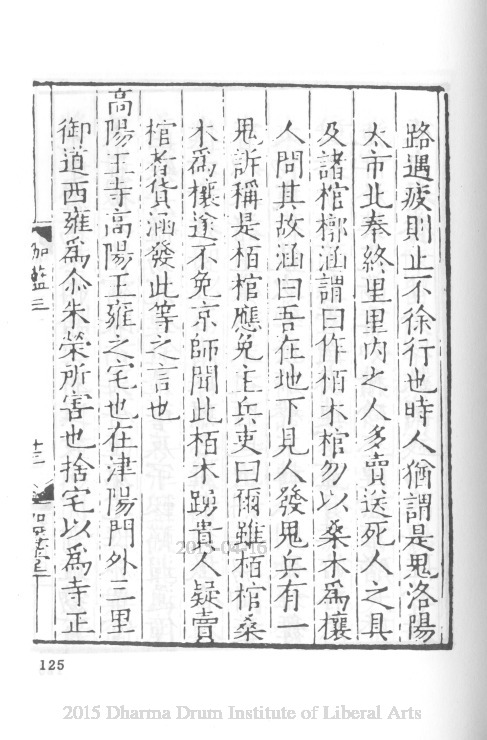 路遇疲則止不徐行也時人猶謂是鬼洛陽
太市北奉終里里内之人多賣送死人之具
及諸棺槨涵謂曰作栢木棺勿以桑木爲欀
人問其故涵曰吾在地下見人發鬼兵有一
鬼訴稱是栢棺應免主兵吏曰爾雖栢棺桑
木爲欀遂不免京師聞此栢木踴貴人疑賣
棺者貨涵發此等之言也
高陽王寺高陽王雍之宅也在津陽門外三里
御道西雍爲尒朱榮所害也捨宅以爲寺正
伽藍三
十三
125
2015-04-16
2015 Dharma Drum Institute of Liberal Arts